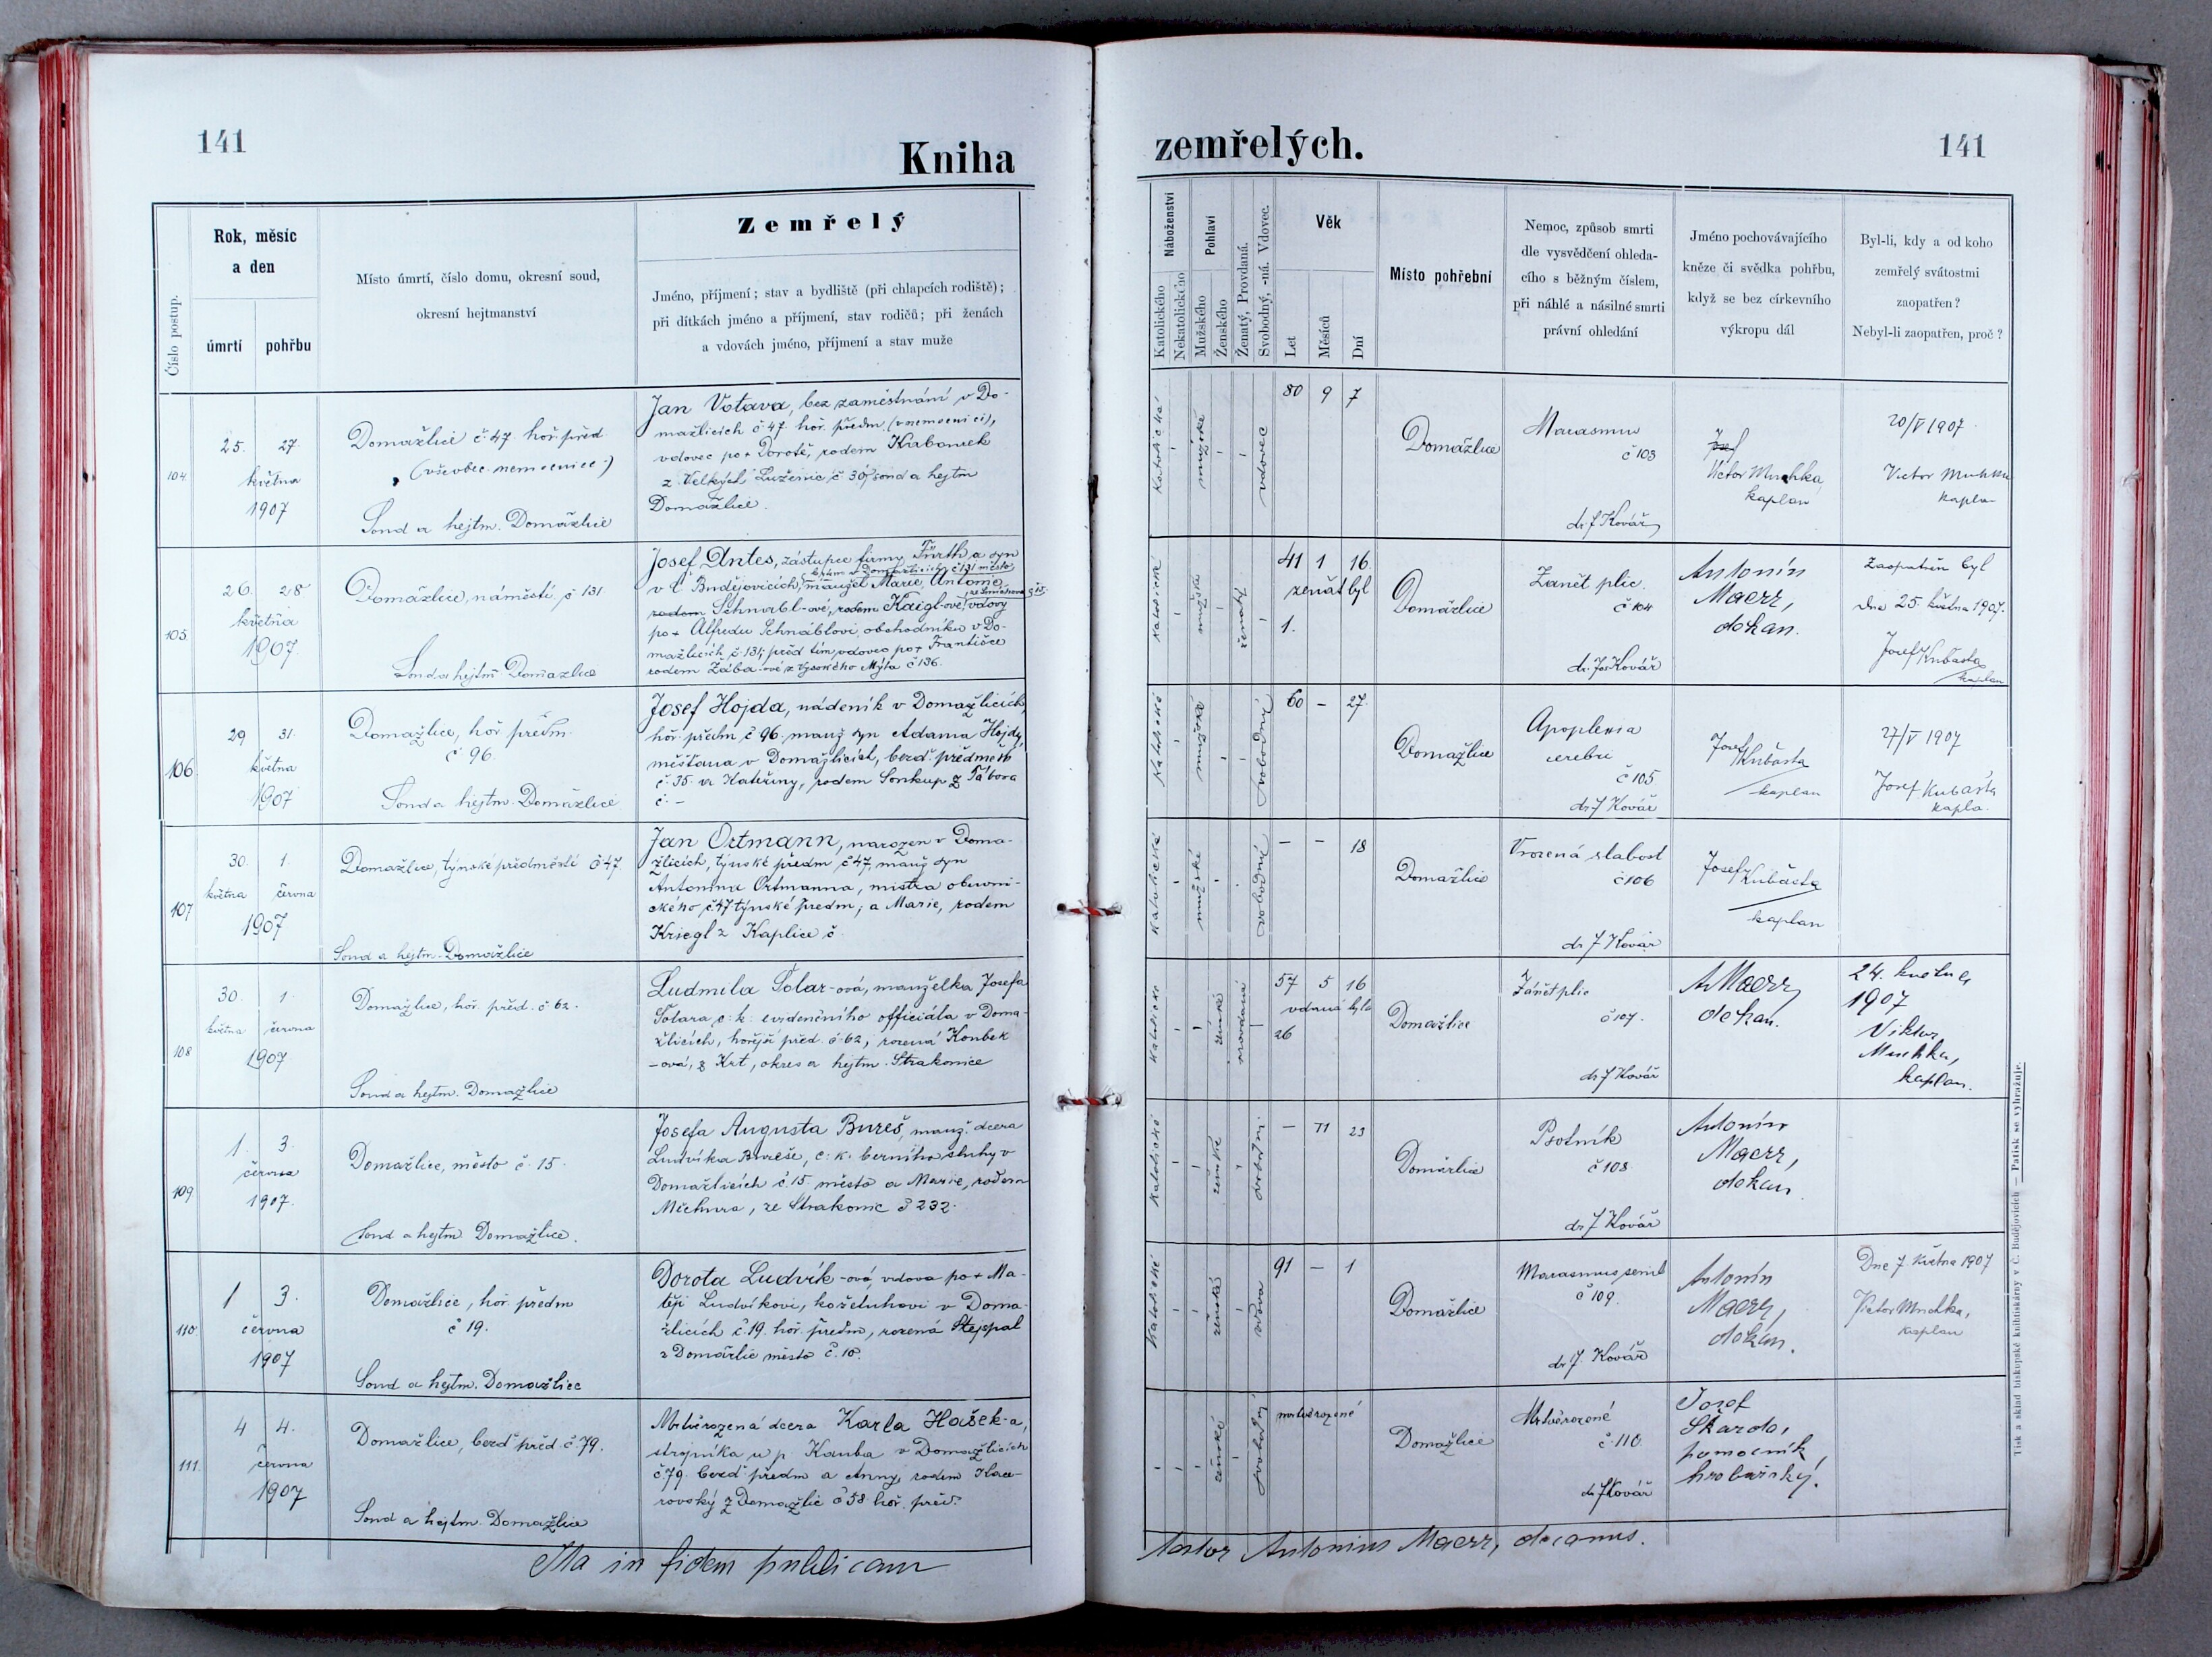 141
Kniha
Číslo postup.
Rok, měsíc
a den
úmrtí
pohřbu
Místo úmrtí, číslo domu, okresní soud,
okresní hejtmanství
Zemřelý
Jméno, příjmení; stav a bydliště (při chlapcích rodiště);
při dítkách jméno a příjmení, stav rodičů; při ženách
a vdovách jméno, příjmení a stav muže
104
25. 27.
května
1907
Domažlice č. 47 hoř. před.
(všeobec. nemocnice)
Soud a hejtm. Domažlice
Jan Votava, bez zaměstnání v Do-
mažlicích č 47 hoř. předm. (v nemocnici),
vdovec po + Dorotě, rodem
z Velkých Luženic č 30, soud a hejtm
Domažlice.
105
26. 28
května
1907.
Domažlice, náměstí č 131
Soud a hejtm. Domažlice
Josef Antes, zástupce firmy Fürth a syn
v Č. Budějovicích, manžel Marie Antonie
rodem Schnabl-ové, rodem Kaigl-ové, vdovy
po + Alfredu Schnáblovi, obchodníku v Do-
mažlicích č. 131; před tím vdovec po + Františce
rodem Zába-ové z Vysokého Mýta č 136.
106
29 31.
května
1907
Domažlice, hoř. předm.
č 96.
Soud a hejtm. Domažlice
Josef Hojda, nádeník v Domažlicích,
hoř. předm č 96. manž syn Adama Hojdy,
měšťana v Domažlicích, bezd. předměstí
č. 35. a Kateřiny, rodem Soukup z Tábora
č. -
107
30. 1.
května června
1907
Domažlice, týnské předměstí č 47.
Soud a hejtm. Domažlice
Jan Ortmann, narozen v Doma-
žlicích, týnské předm č 47, manž syn
Antonína Ortmanna, mistra obuvni-
ckého, č 47 týnské předm; a Marie, rodem
Kriegl z Kaplice č
108
30. 1.
května června
1907.
Domažlice, hoř. před. č 62.
Soud a hejtm. Domažlice
Ludmila Šolar-ová, manželka Josefa
Šolara c. k. evidenčního officiála v Doma-
žlicích, hořejší před. č 62, rozená Koubek
-ová, z Krt, okres a hejtm. Strakonice
109
1. 3.
června
1907.
Domažlice, město č. 15.
Soud a hejtm. Domažlice.
Josefa Augusta Bureš, manž. dcera
Ludvíka Bureše, c. k. berního sluhy v
Domažlicích č 15. město a Marie, rodem
Měchura, ze Strakonic č 232.
110
1 3.
června
1907
Domažlice, hoř. předm
č 19.
Soud a hejtm. Domažlice
Dorota Ludvík-ová, vdova po + Ma-
těji Ludvíkovi, koželuhovi v Doma-
žlicích č. 19. hoř. předm, rozená Steppal
z Domažlic město č. 10.
111.
4 4.
června
1907
Domažlice, bezd. před. č. 79.
Soud a hejtm. Domažlice
Mrtvěrozená dcera Karla Hašek-a,
strojníka u p. Kauba v Domažlicích
č 79. bezd předm a Anny, rodem
z Domažlic č 58 hoř. před.
Ita in fidem publicam
zemřelých.
141
Náboženství
Katolického
Nekatolického
Pohlaví
Mužského
Ženského
Ženatý, Provdaná.
Svobodný, -ná. Vdovec.
Věk
Let
Měsíců
Dní
Místo pohřební
Nemoc, způsob smrti
dle vysvědčení ohleda-
cího s běžným číslem,
při náhlé a násilné smrti
právní ohledání
Jméno pochovávajícího
kněze či svědka pohřbu,
když se bez církevního
výkropu dál
Byl-li, kdy a od koho
zemřelý svátostmi
zaopatřen?
Nebyl-li zaopatřen, proč?
Katolické
mužské
vdovec
80 9 7
Domažlice
Marasmus
č 103
dr. J Kovář
Victor Muchka,
kaplan
20/V 1907.
Victor Muchka
kaplan
Katolické
mužské
ženatý
41 1 16.
ženat byl
1.
Domažlice
Zánět plic.
č 104
dr. Jos Kovář
Antonín
Maerz,
děkan.
Zaopatřen byl
dne 25. května 1907.
Josef Kubašta
kaplan
Katolické
mužské
svobodný
60 - 27.
Domažlice
Apoplexia
cerebri
č 105
dr J Kovář
Josef Kubašta
kaplan
27/V 1907
Josef Kubašta
kapla.
Katolické
mužské
svobodný
- - 18
Domažlice
Vrozená slabost
č 106
dr J Kovář
Josef Kubašta
kaplan
Katolické
ženské
provdaná
57 5 16
vdaná byla
26
Domažlice
Zánět plic
č 107.
dr J Kovář
A Maerz
děkan.
24. května
1907
Viktor
Muchka,
kaplan.
Katolické
ženské
svobodný
- 11 23
Domažlice
Psotník
č 108
dr J Kovář
Antonín
Maerz,
děkan.
Katolické
ženské
vdova
91 - 1
Domažlice
Marasmus senil
č 109.
dr J. Kovář
Antonín
Maerz,
děkan.
Dne 7. května 1907
Victor Muchka,
kaplan
ženské
svobodný
mrtvěrozené
Domažlice
Mrtvěrozené
č. 110
dr J Kovář
Josef
Skarda,
pomocník
hrobařský.
Testor Antonius Maerz, decanus.
Tisk a sklad biskupské knihtiskárny v Č. Budějovicích — Patisk se vyhražuje.